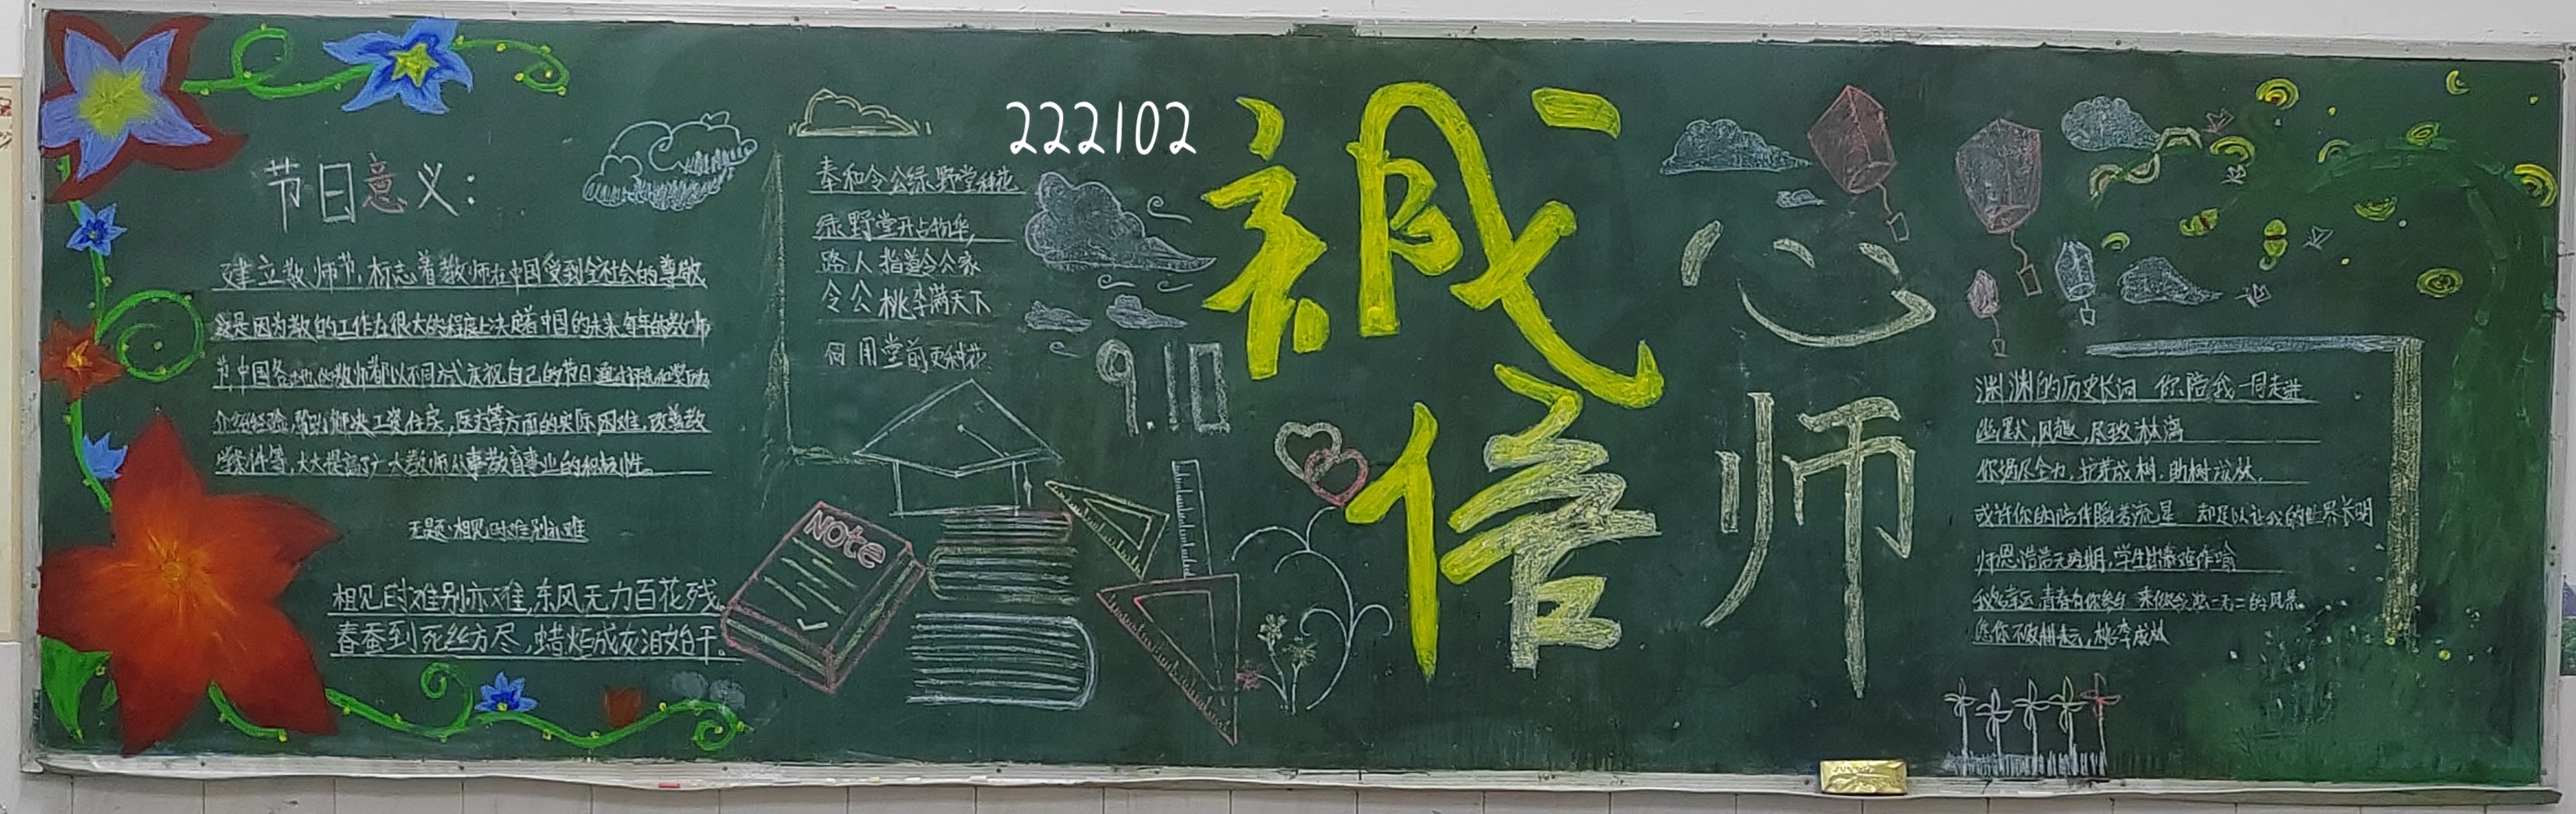 节日意义:
建立教师节,标志着教师在中国受到全社会的尊敬
这是因为教自的工作在很大的程度上决定着中国的未来每年的教师
节中国各地的教师都以不同方式庆祝自己的节日通过评选和奖励,
介绍经验,帮助解决工资住房,医疗等方面的实际困难,改善教
学条件等,大大提高了广大教师从事教育事业的积极性。
无题·相见时难别亦难
相见时难别亦难,东风无力百花残。
春蚕到死丝方尽,蜡炬成灰泪始干。
222102
奉和令公绿野堂种花
绿野堂开占物华,
路人指道令公家
令公桃李满天下
何用堂前更种花
9.10
Note
誠信
心师
渊渊的历史长河 你陪我一同走进
幽默,风趣,尽致淋漓
你竭尽全力,护芽成树,助树成林。
或许你的陪伴胜若流星 却足以让我的世界长明
师恩浩浩无绝期,学生
我多幸运,青春有你参与 乘你 独一无二的风景
愿你不改耕耘,桃李成林